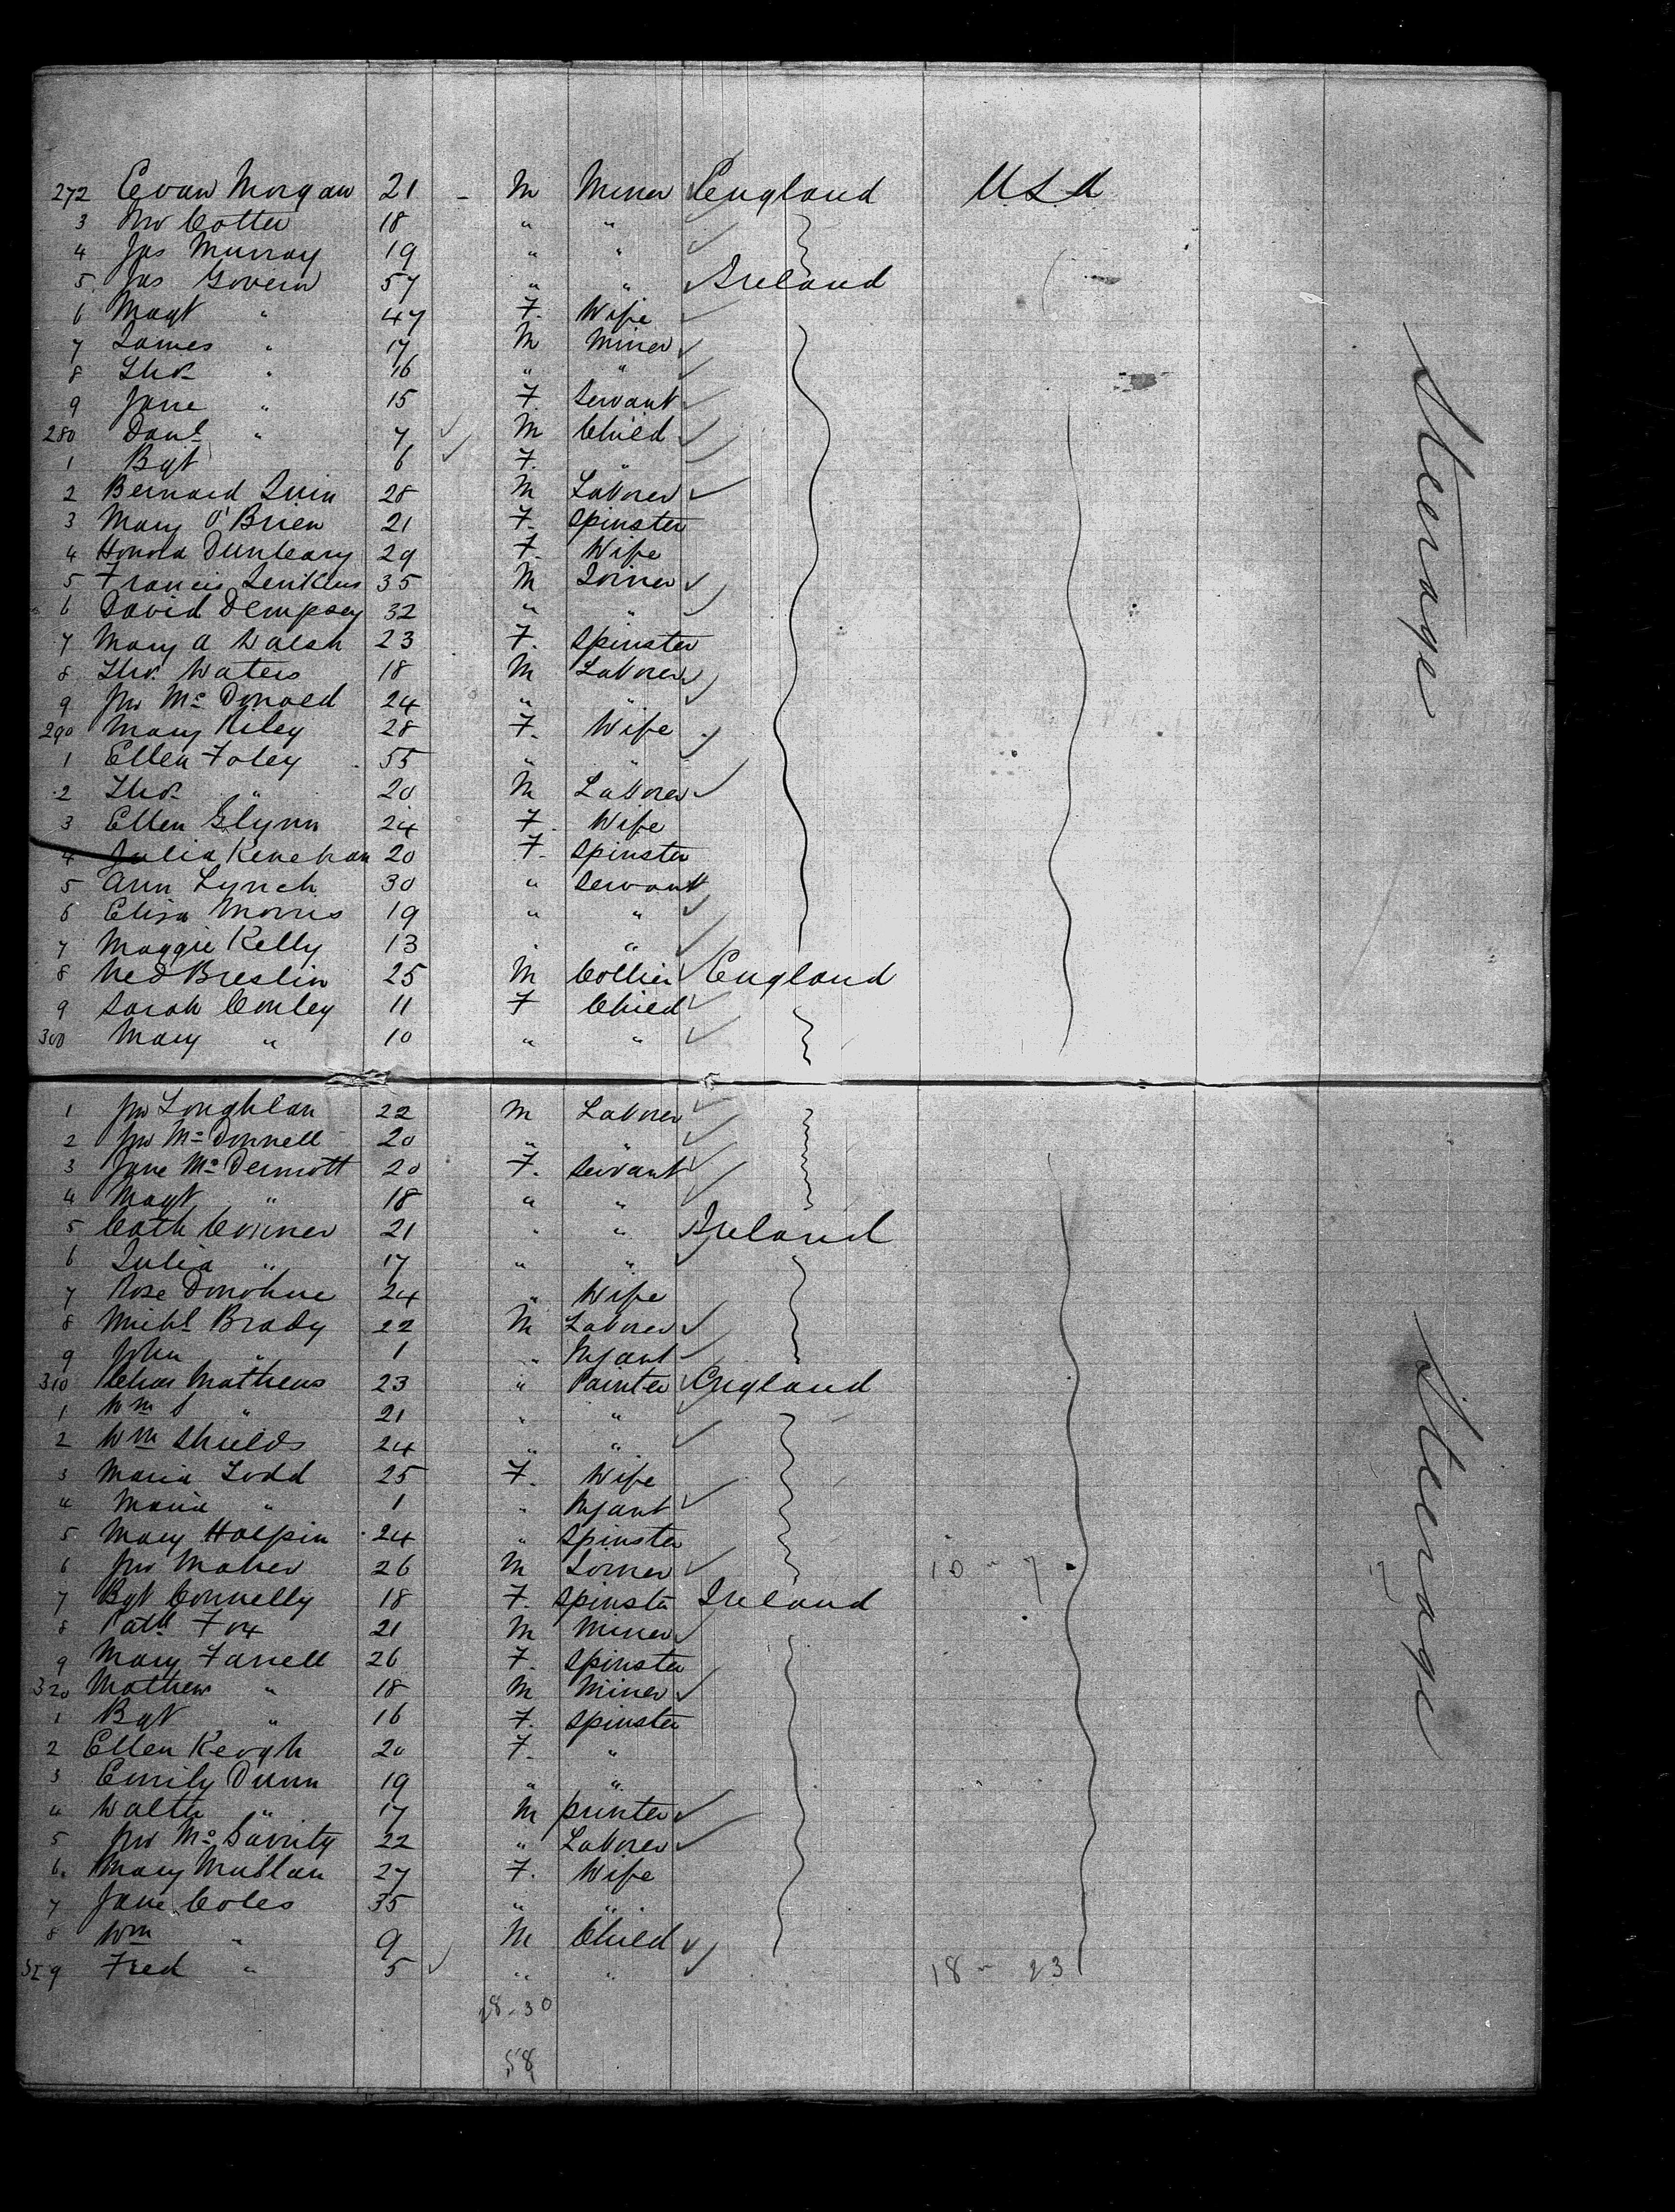 272 Evan Morgan 21 - M Miner England U S A
3 Jno Cotter 18 " "
4 Jas Murray 19 " "
5 Jas Govern 57 " " Ireland
6 Magt " 47 F. Wife
7 James " 17 M Miner
8 Thos " 16 " "
9 Jane " 15 F. Servant
280 Danl " 7 M Child
1 Bgt 6 F. "
2 Bernard Quin 28 M Laborer
3 Mary O'Brien 21 F. Spinster
4 Honora Dunleavy 29 F. Wife
5 Francis Jenkins 35 M Joiner
6 David Dempsey 32 " "
7 Mary A Walsh 23 F. Spinster
8 Thos Waters 18 M Laborer
9 Jno Mc Donald 24 " "
290 Mary Riley 28 F. Wife
1 Ellen Foley 55 " "
2 Thos " 20 M Laborer
3 Ellen Glynn 24 F. Wife
4 Julia Kenehan 20 F. Spinster
5 Ann Lynch 30 " Servant
6 Eliza Morris 19 " "
7 Maggie Kelly 13 " "
8 Ned Breslin 25 M Collier England
9 Sarah Conley 11 F Child
300 Mary " 10 " "
Steerage
1 Jno Loughlan 22 M Laborer
2 Jno Mc Donnell 20 " "
3 Jane Mc Dermott 20 F. Servant
4 Magt " 18 " "
5 Cath Conner 21 " " Ireland
6 Julia " 17 " "
7 Rose Donohue 24 " Wife
8 Michl Brady 22 M Laborer
9 John " 1 " Infant
310 Chas Mathews 23 " Painter England
1 Wm S " 21 " "
2 Wm Shields 24 " "
3 Maria Todd 25 F. Wife
4 Maria " 1 " Infant
5 Mary Halpin 24 " Spinster
6 Jno Maher 26 M Joiner 10 - 7
7 Bgt Connelly 18 F. Spinster Ireland
8 Patk Fox 21 M Miner
9 Mary Farrell 26 F. Spinster
320 Mathew " 18 M Miner
1 Bgt " 16 F. Spinster
2 Ellen Keogh 20 F. "
3 Emily Dunn 19 " "
4 Walter " 17 M printer
5 Jno Mc Garrity 22 " Laborer
6. Mary Mullan 27 F. Wife
7 Jane Coles 35 " "
8 Wm " 9 M Child
329 Fred " 5 " " 18 - 23
28-30
58
Steerage